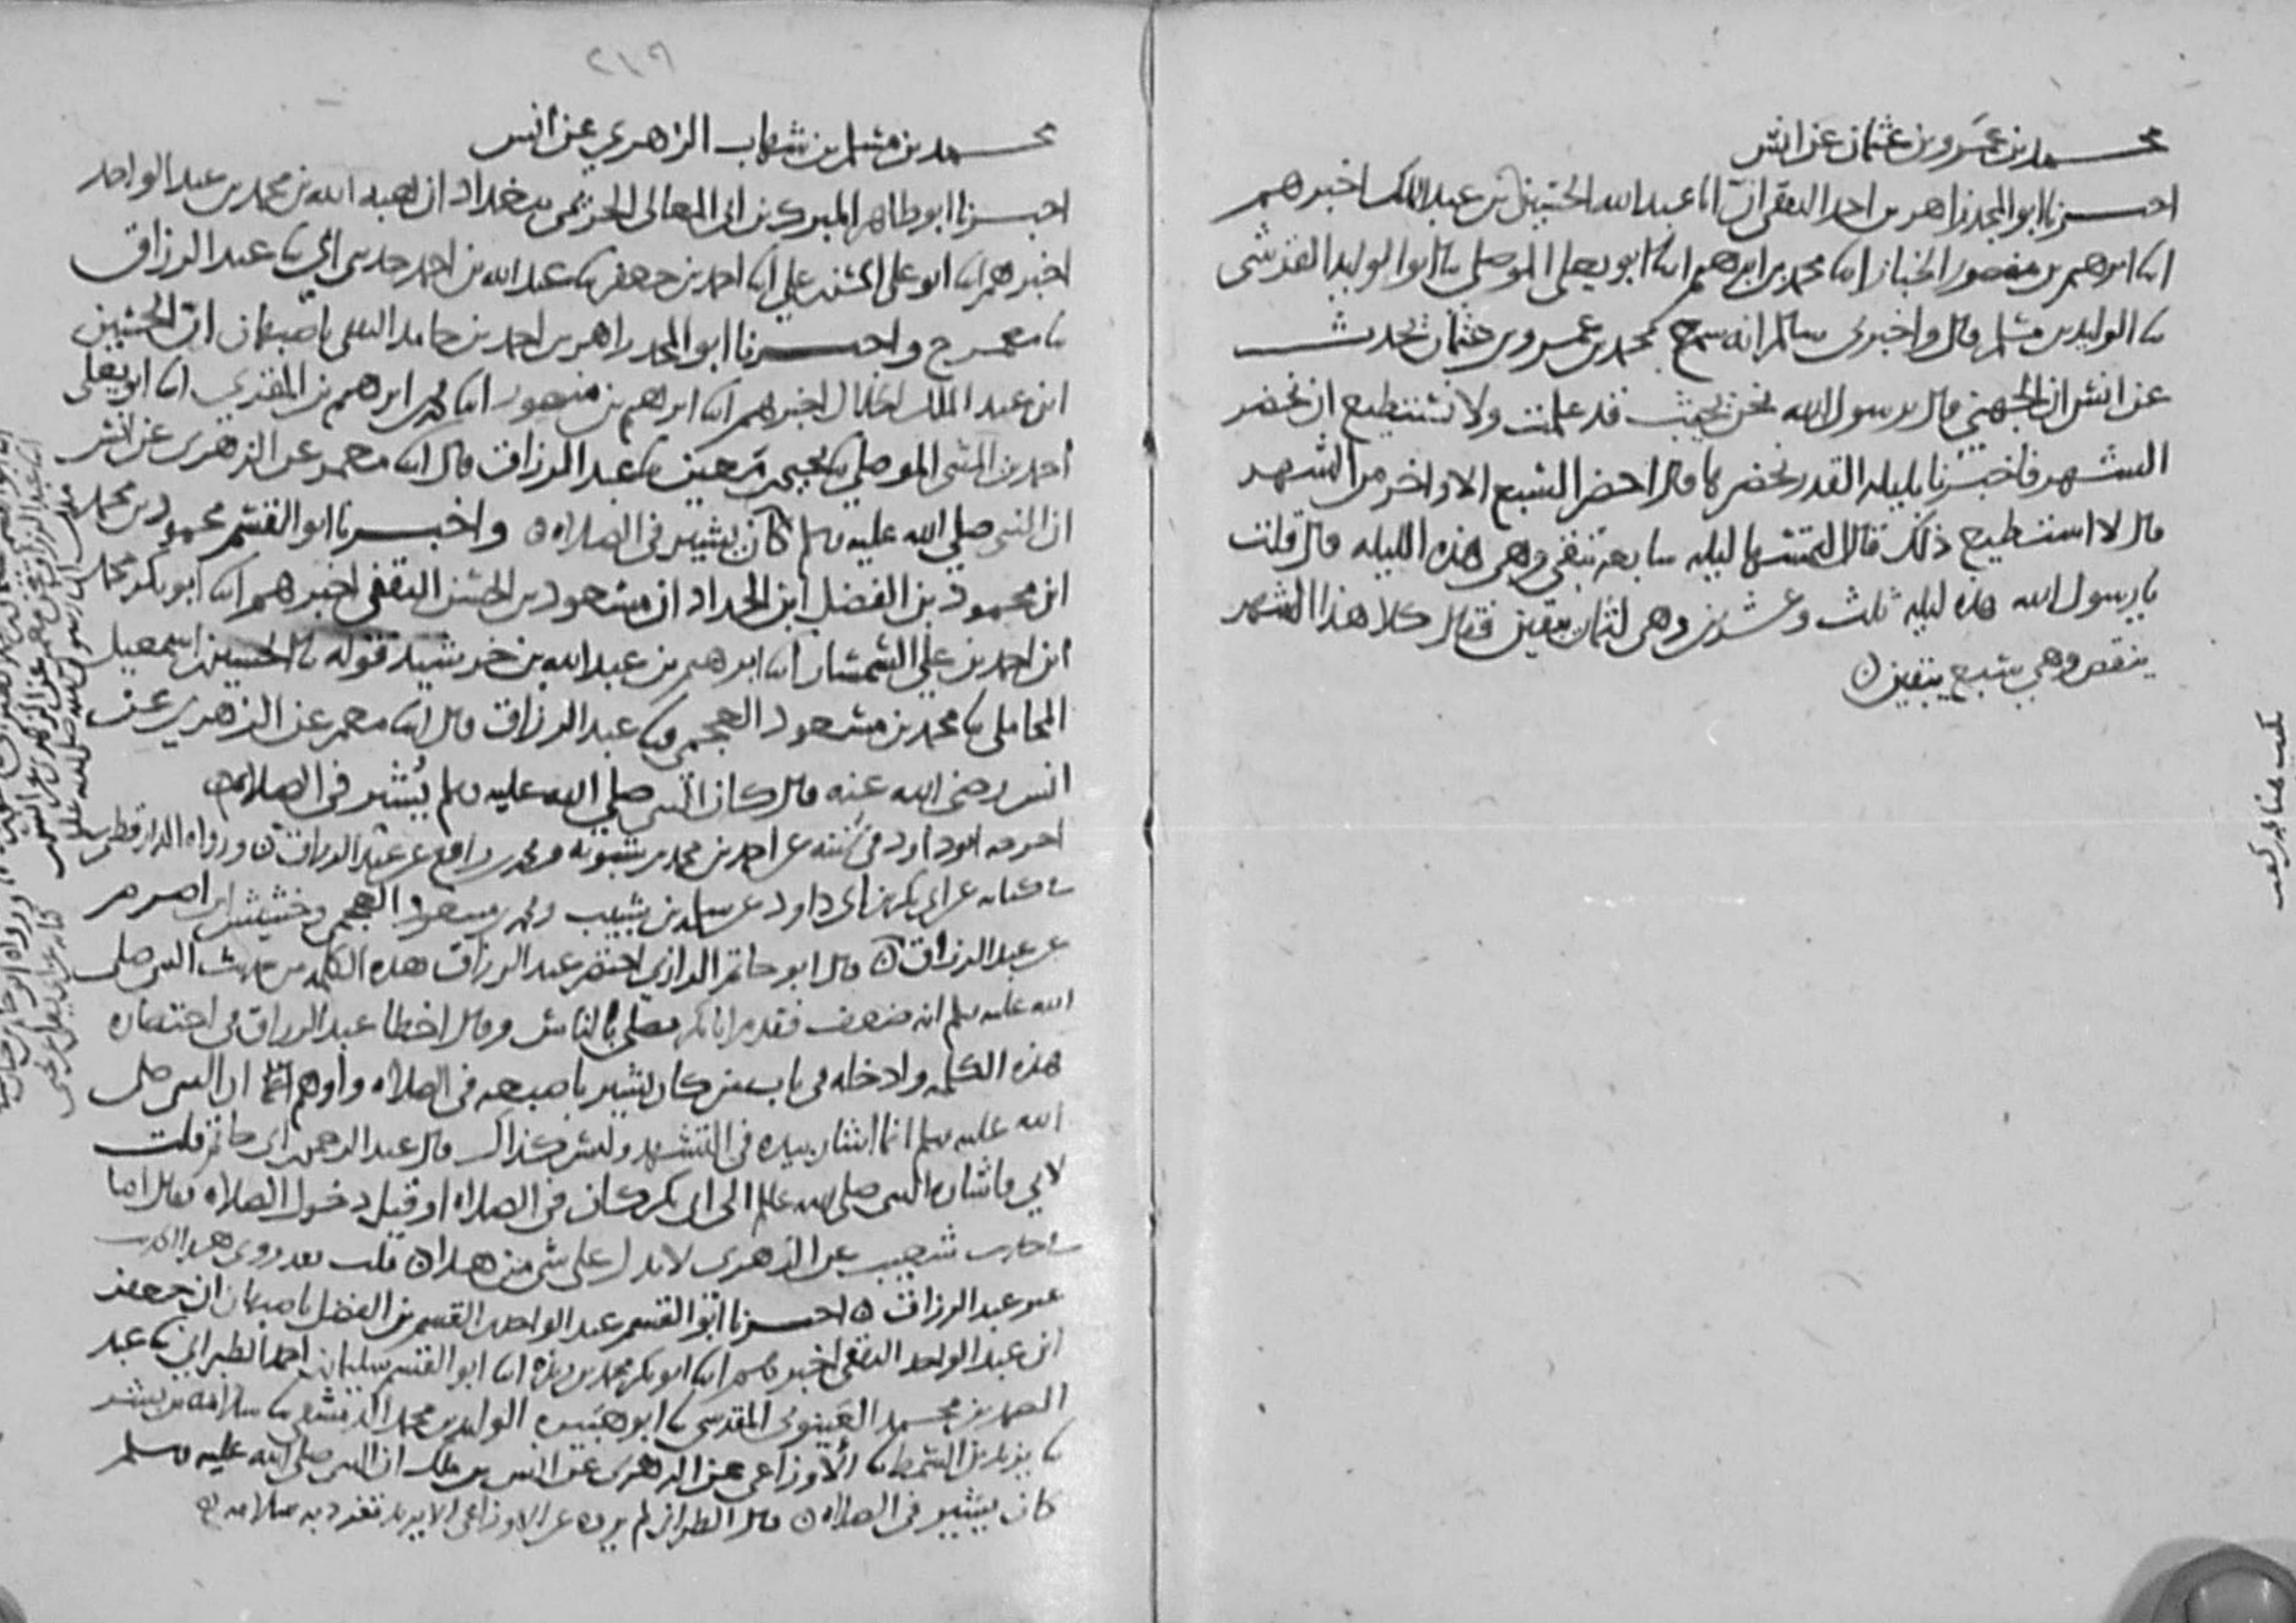 محمد بن عمرو بن عثمان عن انس
اخبرنا ابو المجد زاهر بن احمد الثقفي ان ابا عبد الله الحسين بن عبد الملك اخبرهم
ابنا ابرهيم بن منصور الخباز ابنا محمد بن ابرهيم ابنا ابو يعلى الموصلي ثنا ابو الوليد القرشي
ثنا الوليد بن مسلم قال واخبرني سالم انه سمع محمد بن عمرو بن عثمان يحدث
عن انس ان الجهني قال يرسول الله نحن بحيث قد علمت ولا نستطيع ان نحضر
الشهر فاخبرنا بليلة القدر نحضرها قال احضر السبع الاواخر من الشهر
قال لا استطيع ذلك قال التمسها ليلة سابعة تبقى وهي هذه الليلة قال قلت
يا رسول الله هذه ليلة ثلث وعشرين وهي لثمان يبقين فقال كلا هذا الشهر
ينقص وهي سبع يبقين
يكتب هنا
٢١٩
محمد بن مسلم بن شهاب الزهري عن انس
اخبرنا ابو طاهر المبرك بن ابي المعالي الحريمي ببغداد ان هبة الله بن محمد بن عبد الواحد
اخبرهم ابنا ابو علي الحسن بن علي ابنا احمد بن جعفر ثنا عبد الله بن احمد حدثني ابي ثنا عبد الرزاق
ثنا معمر ح واخبرنا ابو المجد زاهر بن احمد بن حامد الثقفي باصبهان ان الحسين
ابن عبد الملك الخلال اخبرهم ابنا ابرهيم بن منصور ابنا محمد بن ابرهيم بن المقري ابنا ابو يعلى
احمد بن المثنى الموصلي ثنا يحيى بن معين ثنا عبد الرزاق قال ابنا معمر عن الزهري عن انس
ان النبي صلى الله عليه وسلم كان يشير في الصلاه واخبرنا ابو القسم محمود بن محمد
ابن محمود بن الفضل ابن الحداد ان مسعود بن الحسن الثقفي اخبرهم ابنا ابو بكر محمد
ابن احمد بن علي السمسار ابنا ابرهيم بن عبد الله بن خرشيد قوله ثنا الحسين بن اسمعيل
المحاملي ثنا محمد بن مسعود العجمي ثنا عبد الرزاق قال ابنا معمر عن الزهري عن
انس رضي الله عنه قال كان النبي صلى الله عليه وسلم يُشير في الصلاة
اخرجه ابو داود في سننه عن احمد بن محمد بن شبويه ومحمد بن رافع عن عبد الرزاق ورواه الدارقطني
في كتابه عن ابي بكر بن ابي داود عن سلمة بن شبيب ومحمد بن مسعود العجمي وخشيش بن اصرم
عن عبد الرزاق قال ابو حاتم الرازي اختصر عبد الرزاق هذه الكلمة من حديث النبي صلى
الله عليه وسلم انه ضعف فقدم ابا بكر يصلي بالناس وقال اخطا عبد الرزاق في اختصاره
هذه الكلمة وادخله في باب من كان يشير باصبعه في الصلاه واوهم ان النبي صلى
الله عليه وسلم انما اشار بيده في التشهد وليس كذاك قال عبد الرحمن بن ابي حاتم قلت
لابي فاشارة النبي صلى الله عليه وسلم الى ابي بكر كان في الصلاه او قبل دخول الصلاه فقال اما
في حديث شعيب عن الزهري لا يدل على شي من هذا قلت فقد روى هذا الحديث
غير عبد الرزاق اخبرنا ابو القسم عبد الواحد بن القسم بن الفضل باصبهان ان جعفر
ابن عبد الواحد الثقفي اخبرهم ابنا ابو بكر محمد بن ريذه ابنا ابو القسم سليمان بن احمد الطبراني ثنا عبد
الصمد بن محمد العينوني المقدسي ثنا ابو هبيرة الوليد بن محمد الدمشقي ثنا سلامة بن بشر
ثنا يزيد بن السمط ثنا الاوزاعي عن الزهري عن انس بن ملك ان النبي صلى الله عليه وسلم
كان يشير في الصلاه قال الطبراني لم يروه عن الاوزاعي الا يزيد تفرد به سلامه